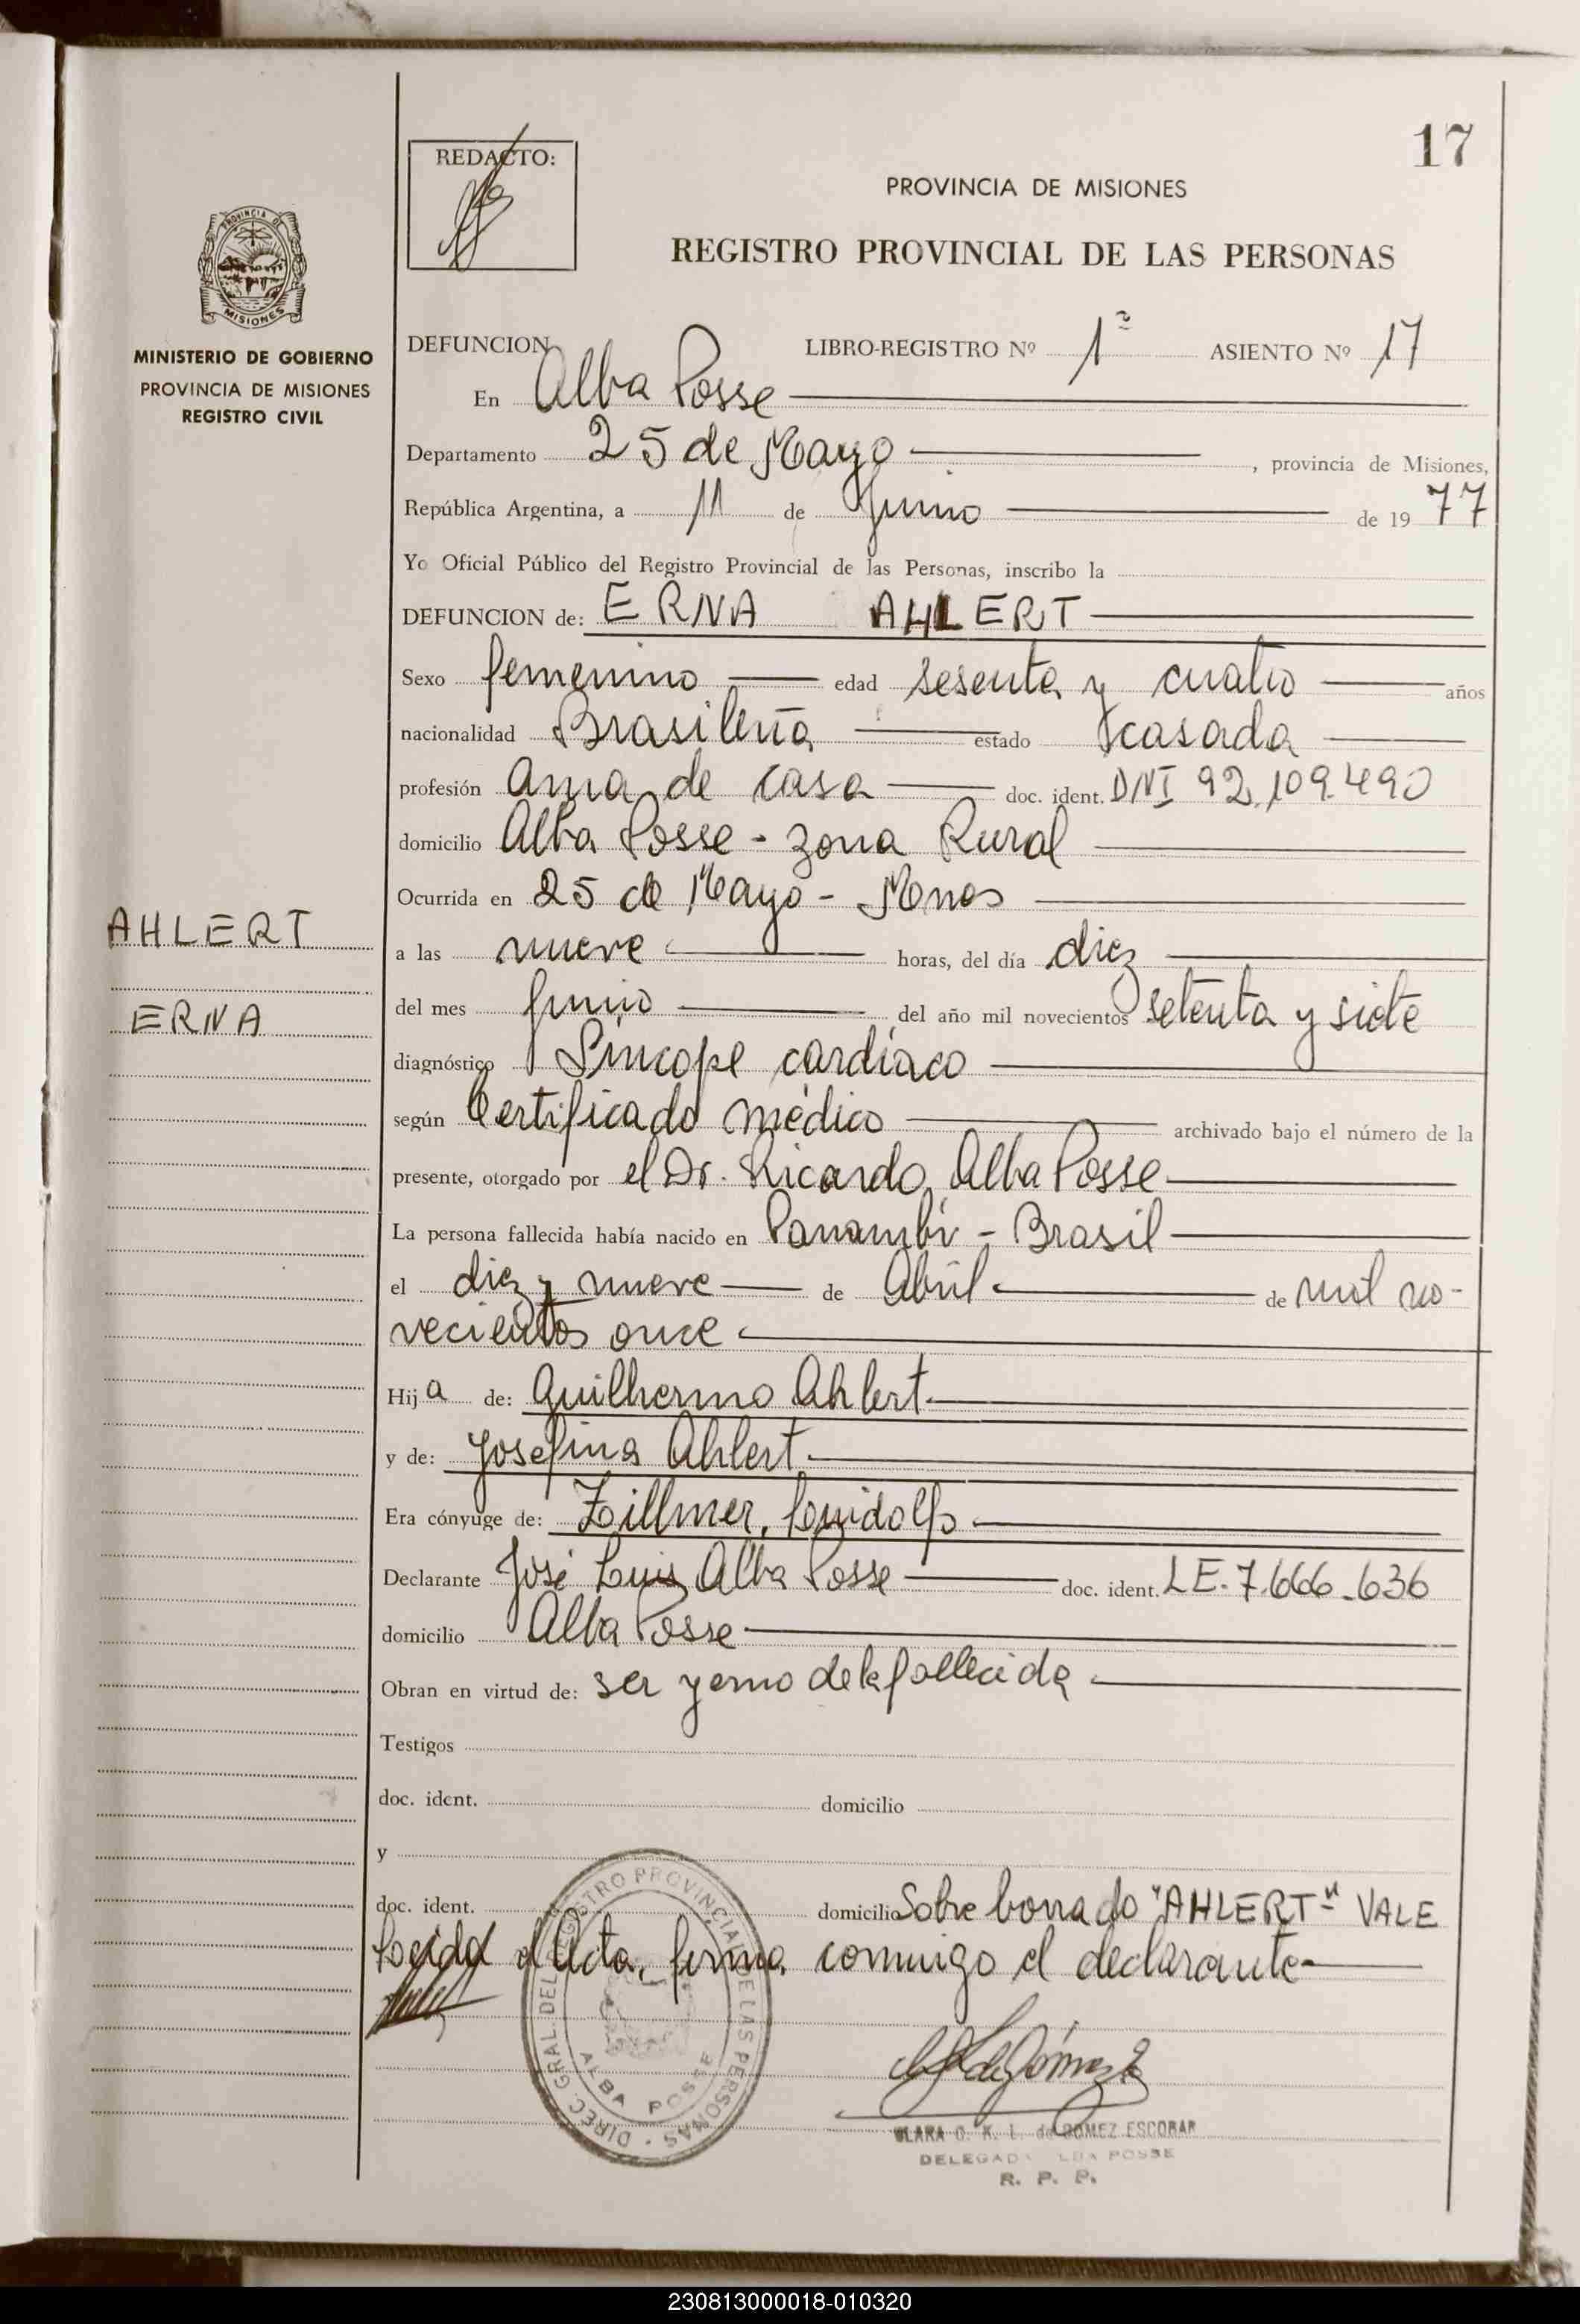 17
REDACTO:
PROVINCIA DE MISIONES
REGISTRO PROVINCIAL DE LAS PERSONAS
PROVINCIA DE
MISIONES
MINISTERIO DE GOBIERNO
PROVINCIA DE MISIONES
REGISTRO CIVIL
DEFUNCION LIBRO-REGISTRO Nº 1º ASIENTO Nº 17
En Alba Posse
Departamento 25 de Mayo, provincia de Misiones,
República Argentina, a 11 de Junio de 1977
Yo Oficial Público del Registro Provincial de las Personas, inscribo la
DEFUNCION de: ERNA AHLERT
Sexo femenino edad sesenta y cuatro años
nacionalidad Brasileña estado casada
profesión ama de casa doc. ident. DNI 92.109.490
domicilio Alba Posse - zona Rural
Ocurrida en 25 de Mayo - Mnes
AHLERT
ERNA
a las nueve horas, del día diez
del mes Junio del año mil novecientos setenta y siete
diagnóstico Síncope cardíaco
según Certificado médico archivado bajo el número de la
presente, otorgado por el Dr. Ricardo Alba Posse
La persona fallecida había nacido en Panambí - Brasil
el diez y nueve de Abril de mil no-
vecientos once
Hija de: Guilhermo Ahlert
y de: Josefina Ahlert
Era cónyuge de: Zillmer, Luidolfo
Declarante José Luis Alba Posse doc. ident. LE. 7.666.636
domicilio Alba Posse
Obran en virtud de: ser yerno de la fallecida
Testigos
doc. ident. domicilio
y
doc. ident. domicilio Sobre borrado "AHLERT" VALE
Leída el Acta, firma conmigo el declarante
DIREC. GRAL. DEL REGISTRO PROVINCIAL DE LAS PERSONAS
ALBA POSSE
CLARA O. K. L. de GOMEZ ESCOBAR
DELEGADA ALBA POSSE
R. P. P.
230813000018-010320